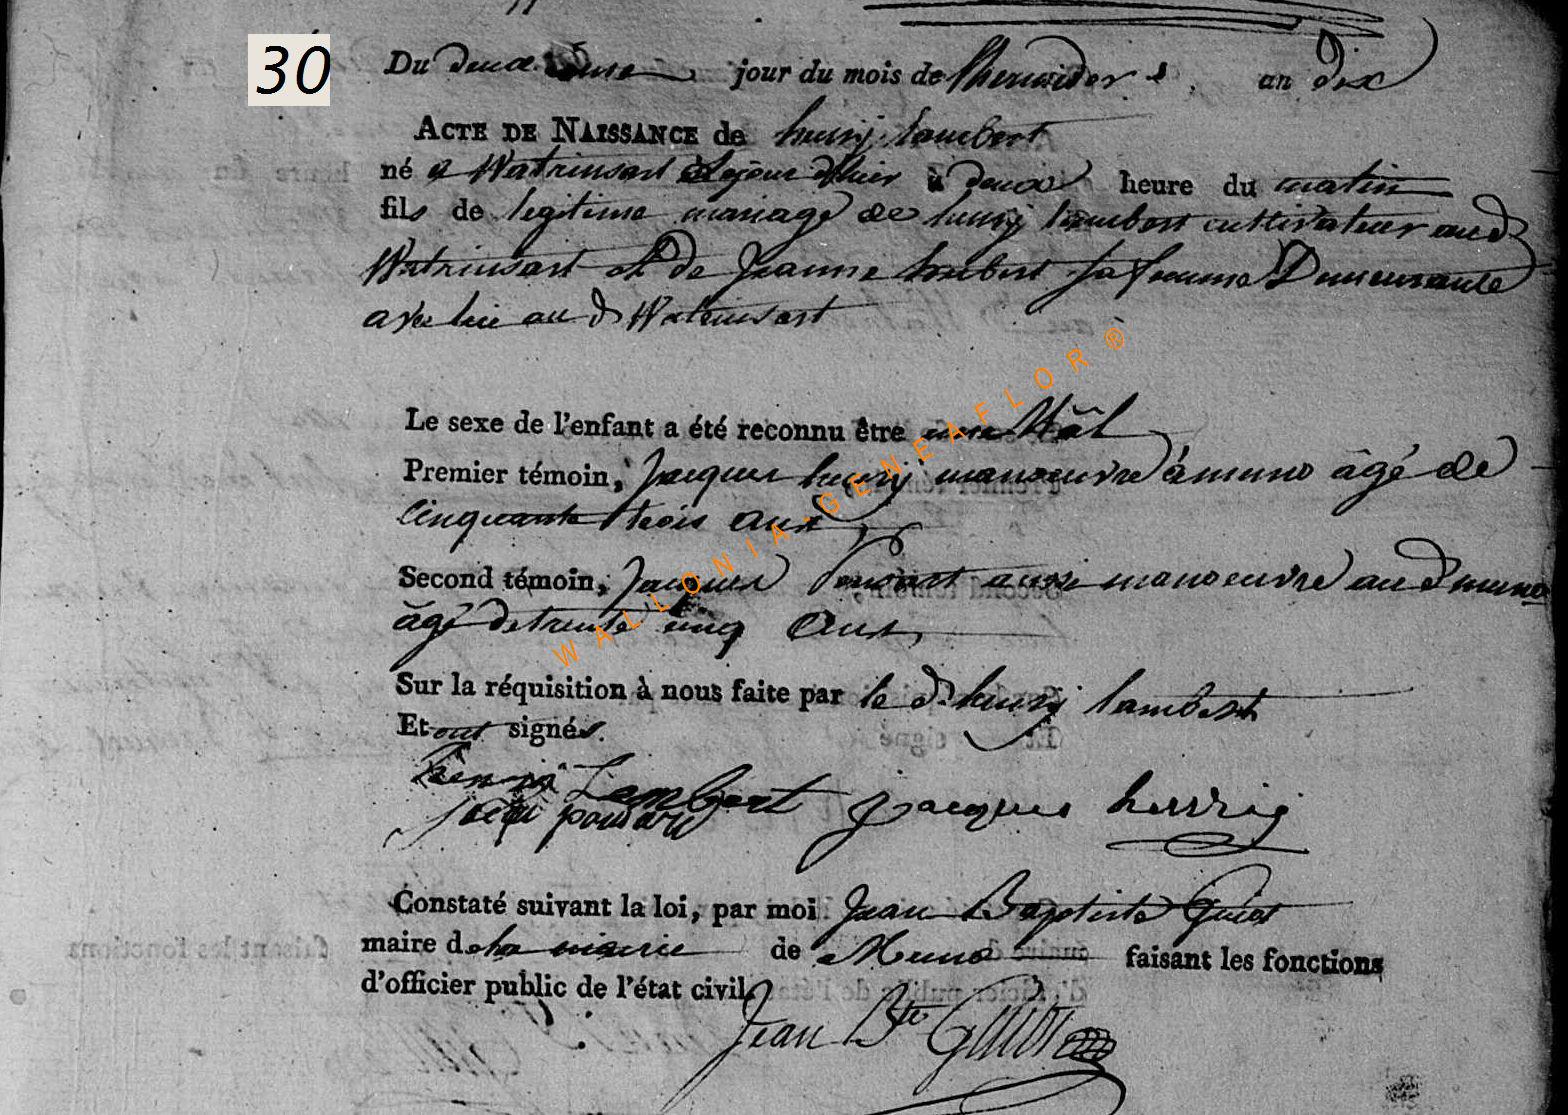 30
Du deuxieme jour du mois de thermidor an dix
ACTE DE NAISSANCE de henry lambert
né a Watrinsart Lejour dhier à deux heure du matin
fils de legitime mariage de henry lambert cultivateur aud
Watrinsart et de Jeanne hubert sa femme Demeurante
avec lui au d Watrinsart
Le sexe de l'enfant a été reconnu être une Mâl
Premier témoin, Jacques henry manoeuvre à muno âgé de
Cinquante trois ans
Second témoin, Jacques Ponsart aussi manoeuvre au d muno
âgé de trente cinq ans
Sur la réquisition à nous faite par le d henry lambert
Et ont signés.
henry Lambert Jacques henrrig
ponsart
Constaté suivant la loi, par moi Jean Baptiste Guiot
maire de la mairie de Muno faisant les fonctions
d'officier public de l'état civil.
Jean Bte Guiot
WALLONIA-GENEAFLOR®